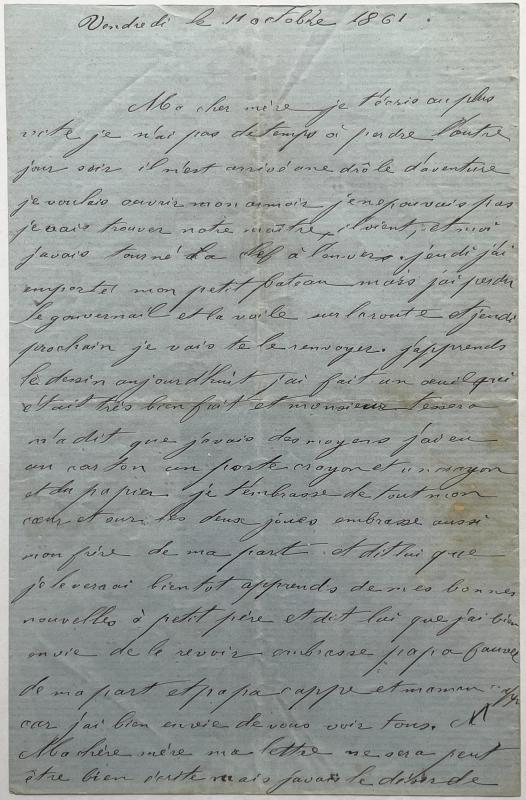 Vendredi le 11 octobre 1861.
Ma cher mère je t'écris au plus
vite je n'ai pas de temps à perdre l'autre
jour soir il m'est arrivé une drôle d'aventure
je voulais ouvrir mon armoir je ne pouvais pas
je vais trouver notre maître, il vient, et moi
javais tourné la clef à l'envers. jeudi j'ai
emporté mon petit bateau mais j'ai perdu
le gouvernail et la voile sur la route et jeudi
prochain je vais te le renvoyer. j'apprends
le dessin aujourd'huit j'ai fait un œuil qui
était très bien fait et monsieur Tessera
m'a dit que j'avais des moyens j'ai eu
un carton un porte crayon et un crayon
et du papier je t'embrasse de tout mon
cœur et sur les deux joues embrasse aussi
mon frère de ma part. et dit lui que
je le verrai bientot apprends de mes bonnes
nouvelles à petit père et dit lui que j'ai bien
envie de le revoir embrasse papa
de ma part et papa cappe et maman
car j'ai bien envie de vous voir tous.
Ma chère mère ma lettre ne sera peut
être bien écrite mais javais le désir de